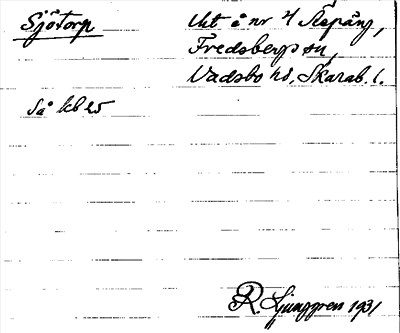 Sjötorp
Urt å nr 4 Repäng,
Fredsbergs sn,
Vadsbo hd, Skarab. l.
Så kb 25
R. Ljunggren 1931